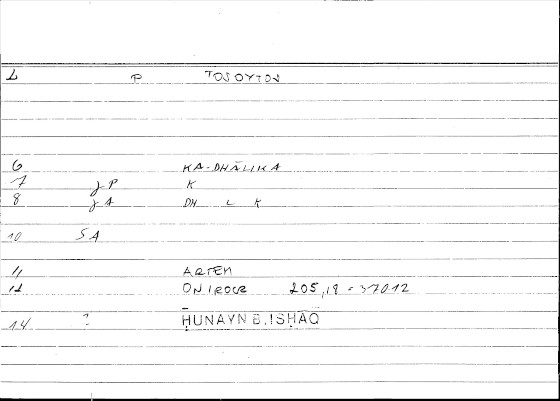 1 P ΤΟΙΟΥΤΟΝ
6 KA-DHĀLIKA
7 JP K
8 JA DH L K
10 SA
11 ARTEM
12 ONIROCR 205,18 = 37012
14 ? ḤUNAYN B. ISḤĀQ